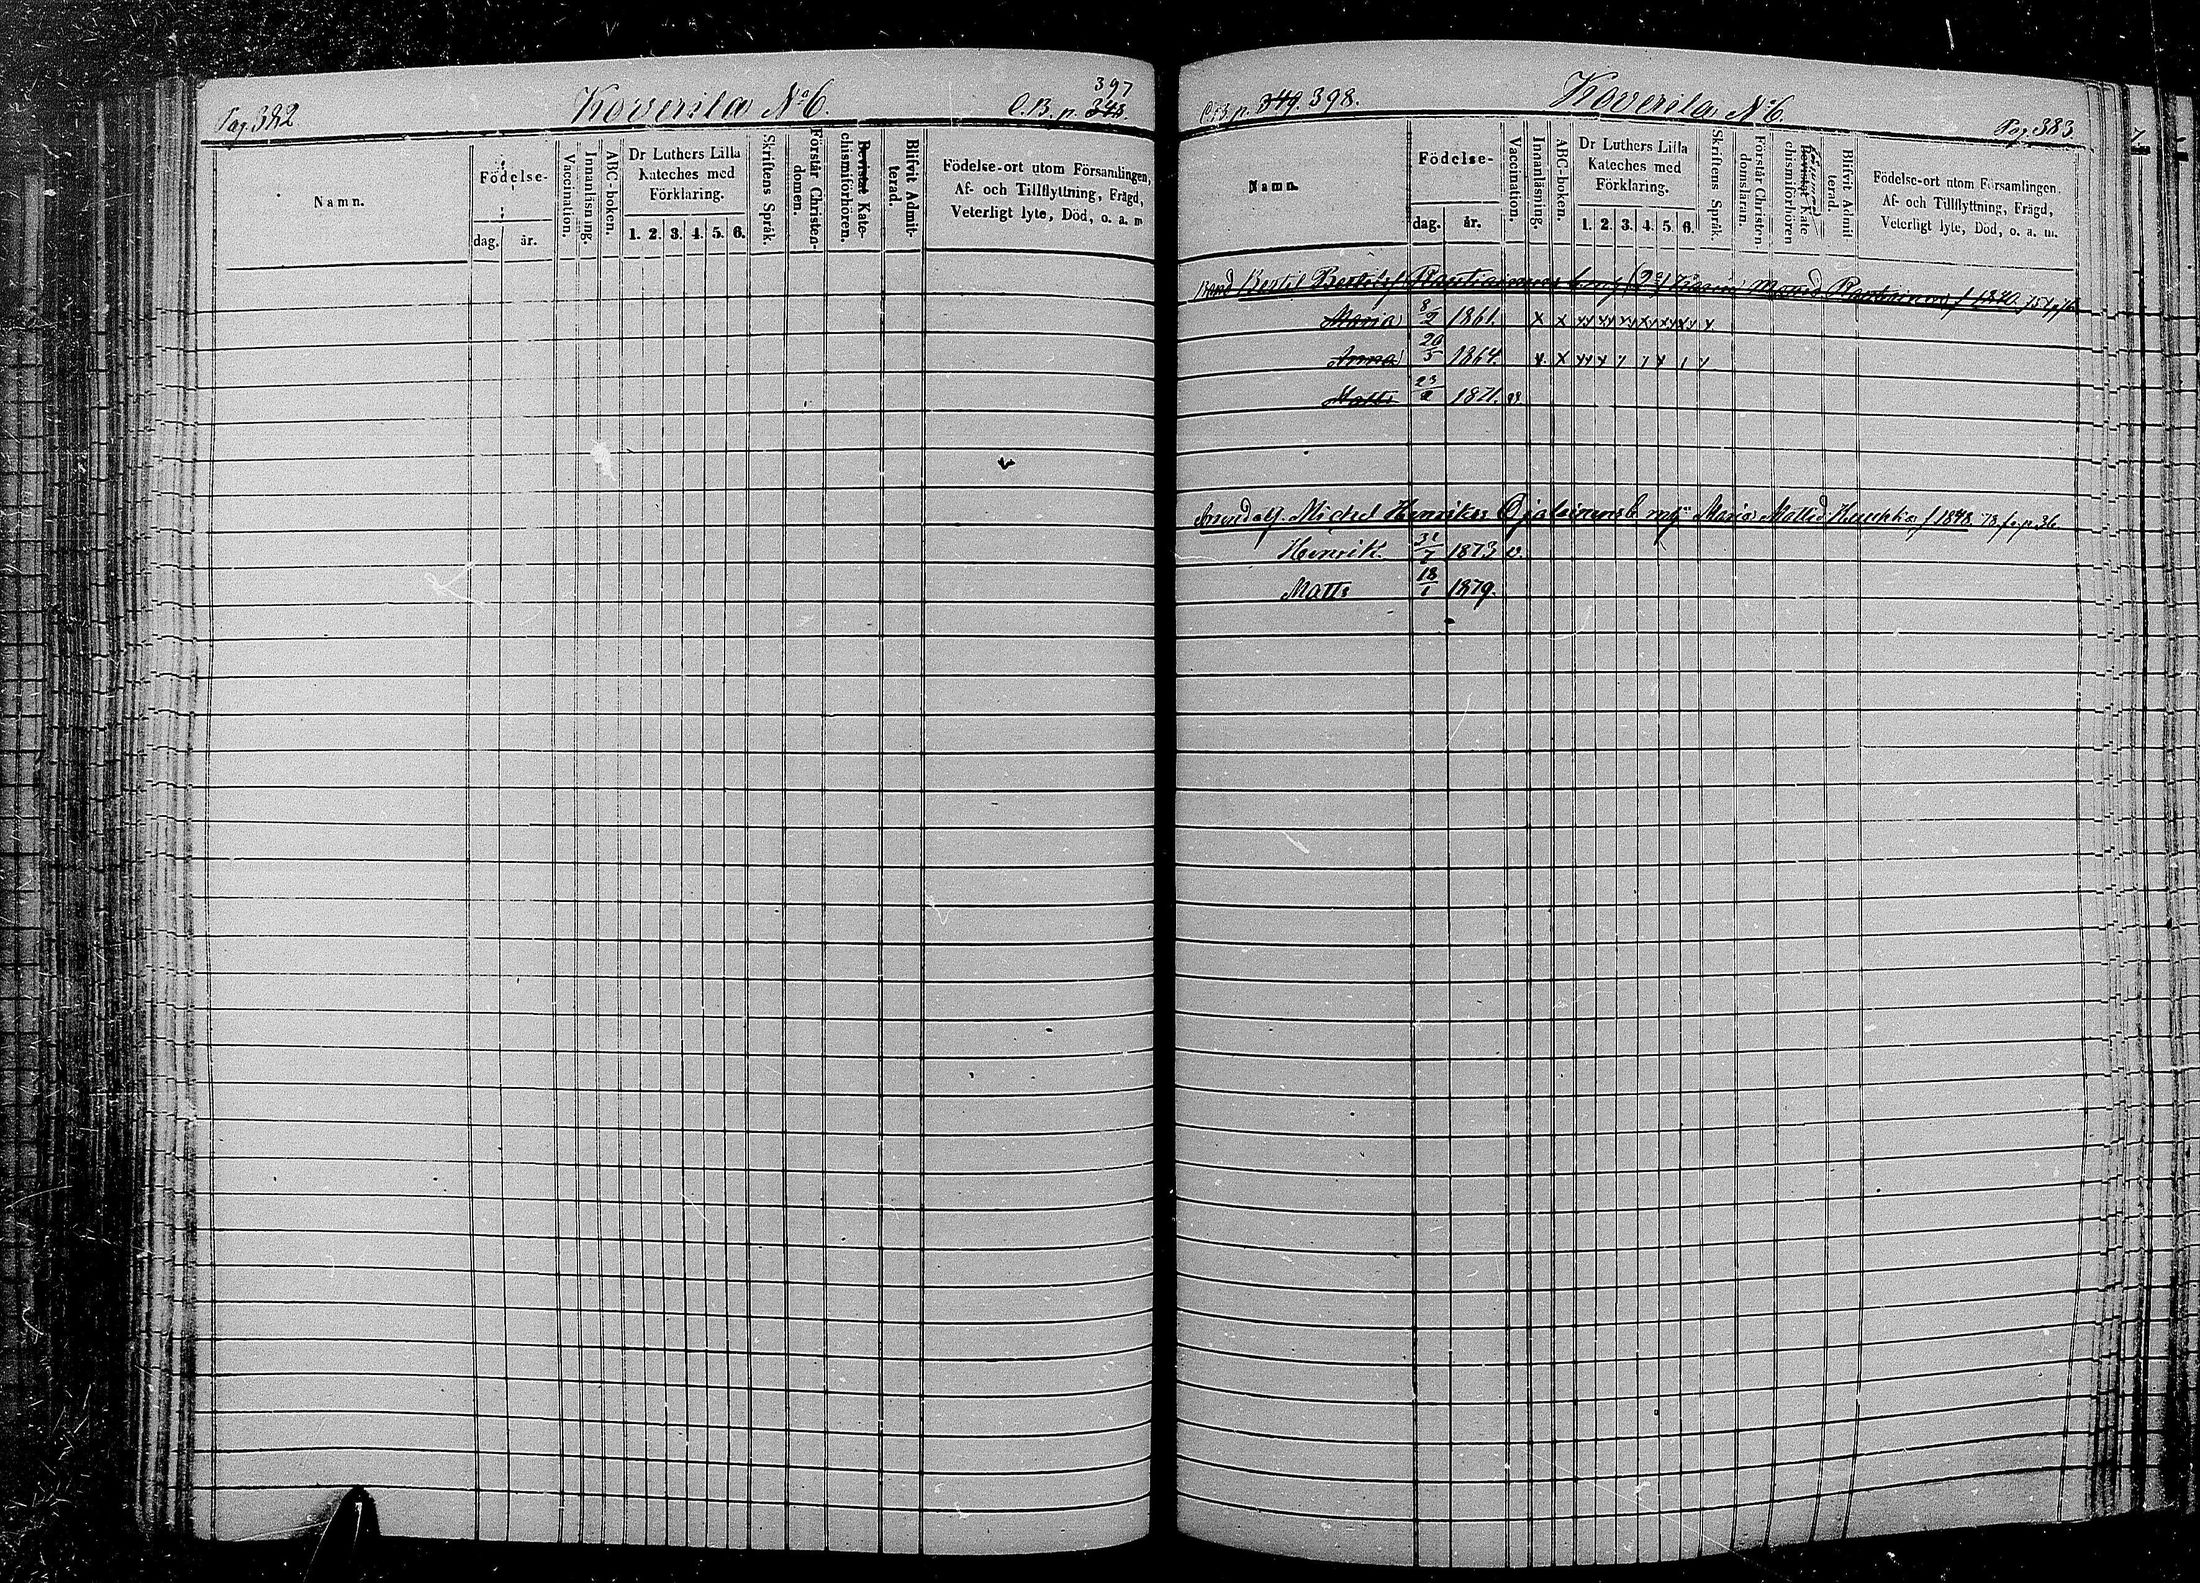 Pag. 382
Koverila No 6.
C.B. p. 348. 397
Namn.
Födelse-
dag.
år.
Vaccination.
Innanläsning.
ABC-boken.
Dr Luthers Lilla
Kateches med
Förklaring.
1. 2. 3. 4. 5. 6.
Skriftens Språk.
Förstår Christen-
domen.
Bevistat Kate-
chismiförhören.
Blifvit Admit-
terad.
Födelse-ort utom Församlingen,
Af- och Tillflyttning, Frägd,
Veterligt lyte, Död, o. a. m
C.B. p. 349. 398.
Koverila No 6.
Pag. 383
Namn.
Födelse-
dag.
år.
Vaccination.
Innanläsning.
ABC-boken.
Dr Luthers Lilla
Kateches med
Förklaring.
1. 2. 3. 4. 5. 6.
Skriftens Språk.
Förstår Christen-
domsläran.
Kate
chismiförhören
Blifvit Admit
terad.
Födelse-ort utom Församlingen,
Af- och Tillflyttning, Frägd,
Veterligt lyte, Död, o. a. m.
Bond Bertil
Maria 8/2 1861. x x xx xx xx xx xx xx x
Anna 20/5 1864. x x xx x
Matts 23 1871. v
Michel Henriks Maria Matts f 1848
Henrik 31/7 1873 v.
Matts 18/1 1879.